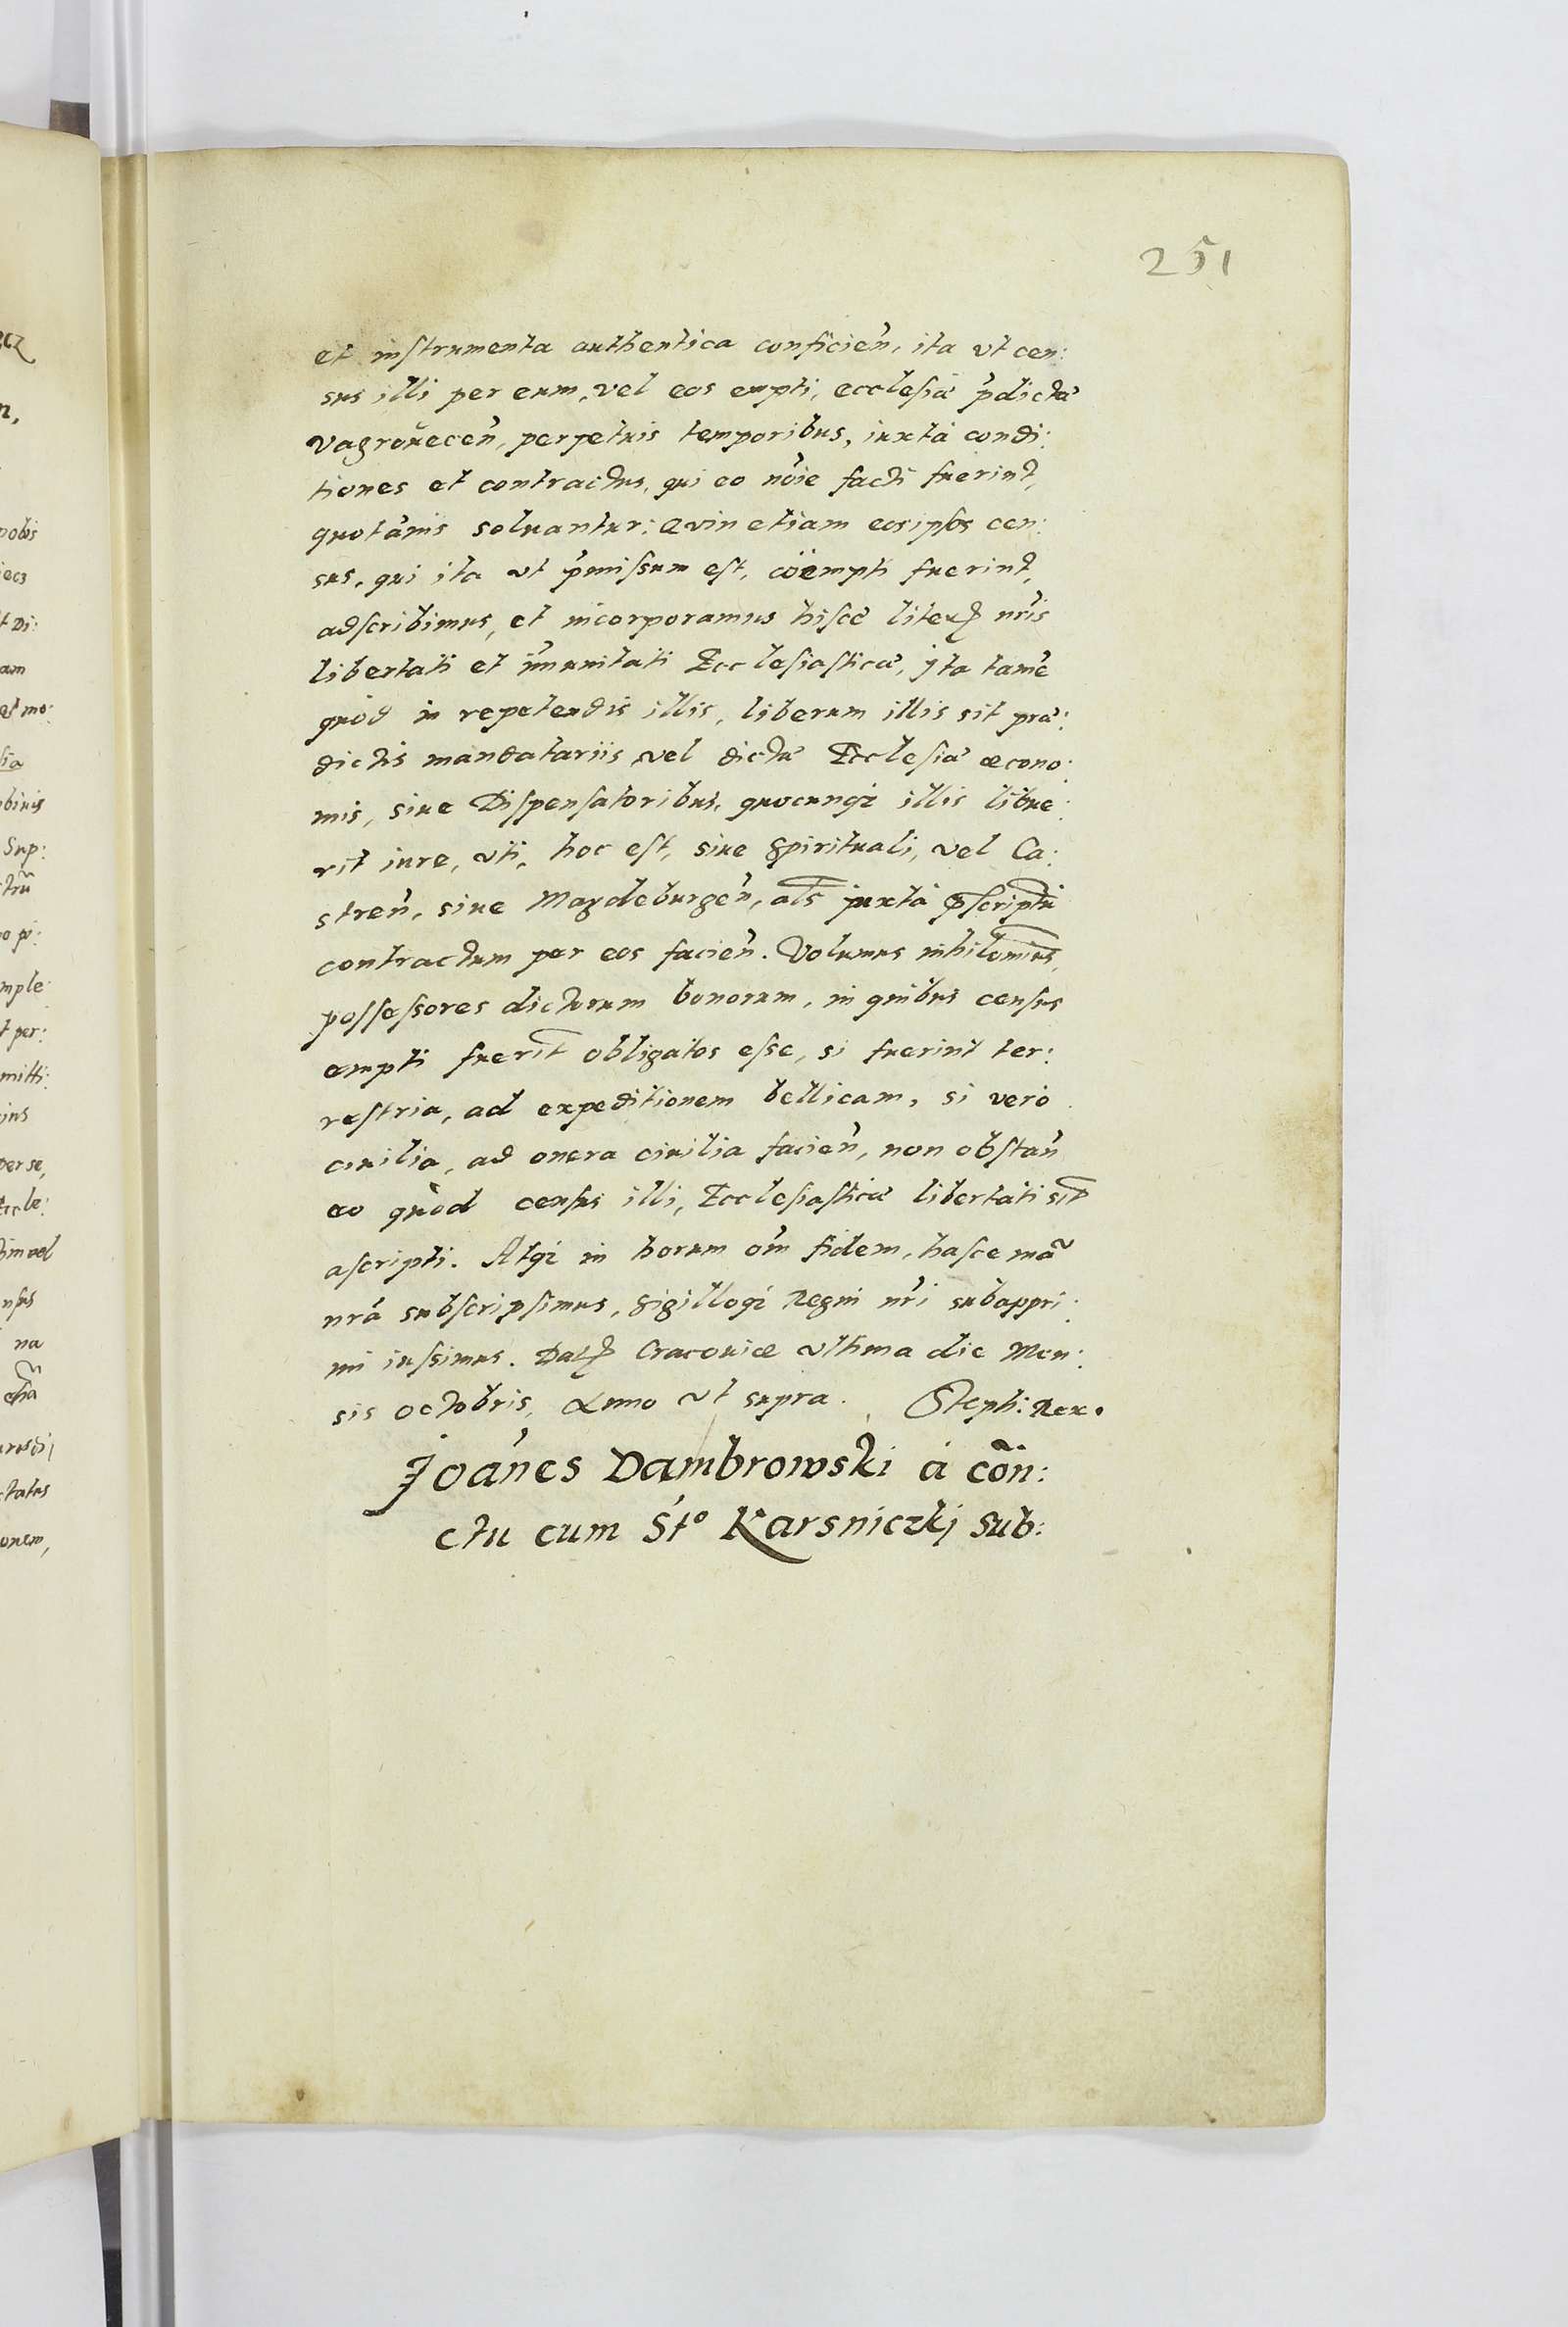 251
et instrumenta authentica conficień, ita vt cen:
sus illi per eum, vel eos empti, ecclesiæ p̃dictæ
Vagroueceń, perpetuis temporibus, iuxta condi:
tiones et contractus, qui eo nõie facti fuerint,
quotãnis soluantur: Qvin etiam eosipsos cen:
sus, qui ita vt p̃missum est, cöempti fuerint,
adscribimus, et incorporamus hisce literis nr̃is
libertati et im̃unitati Ecclesiasticæ, jta tamẽ
quòd in repetendis illis, liberum illis sit præ:
dictis mandatariis vel dictæ Ecclesiæ œcono:
mis, siue Dispensatoribus, quocunqz illis libue:
rit iure, vti, hoc est, siue spirituali, vel Ca:
streń, siue Magdeburgeń, als̃ juxta p̃scriptũ
contractum per eos facień. Volumus nihilominus,
possessores dictorum bonorum, in quibus census
empti fuerit̃ obligatos esse, si fuerint ter:
restria, ad expeditionem bellicam, si verò
ciuilia, ad onera ciuilia facień, non obstań
eo quòd census illi, Ecclesiasticæ libertati sit̃
ascripti. Atqz in horum om̃ fidem, hasce mãu
nr̃a subscripsimus, sigilloqz Regni nr̃i subappri:
mi iussimus. Datz Cracouiæ vltima die Men:
sis octobris, Anno vt supra. Steph: Rex.
Joãnes Dambrowski à cõn:
ctu cum Sto Karsniczkj sub:
nobis
iecz
t Di:
am
et mo:
sia
Sup:
trũ
o pi:
mple
t per:
mitti:
ius
per se,
Eccle:
im vel
nsus
na
tatus
onem,